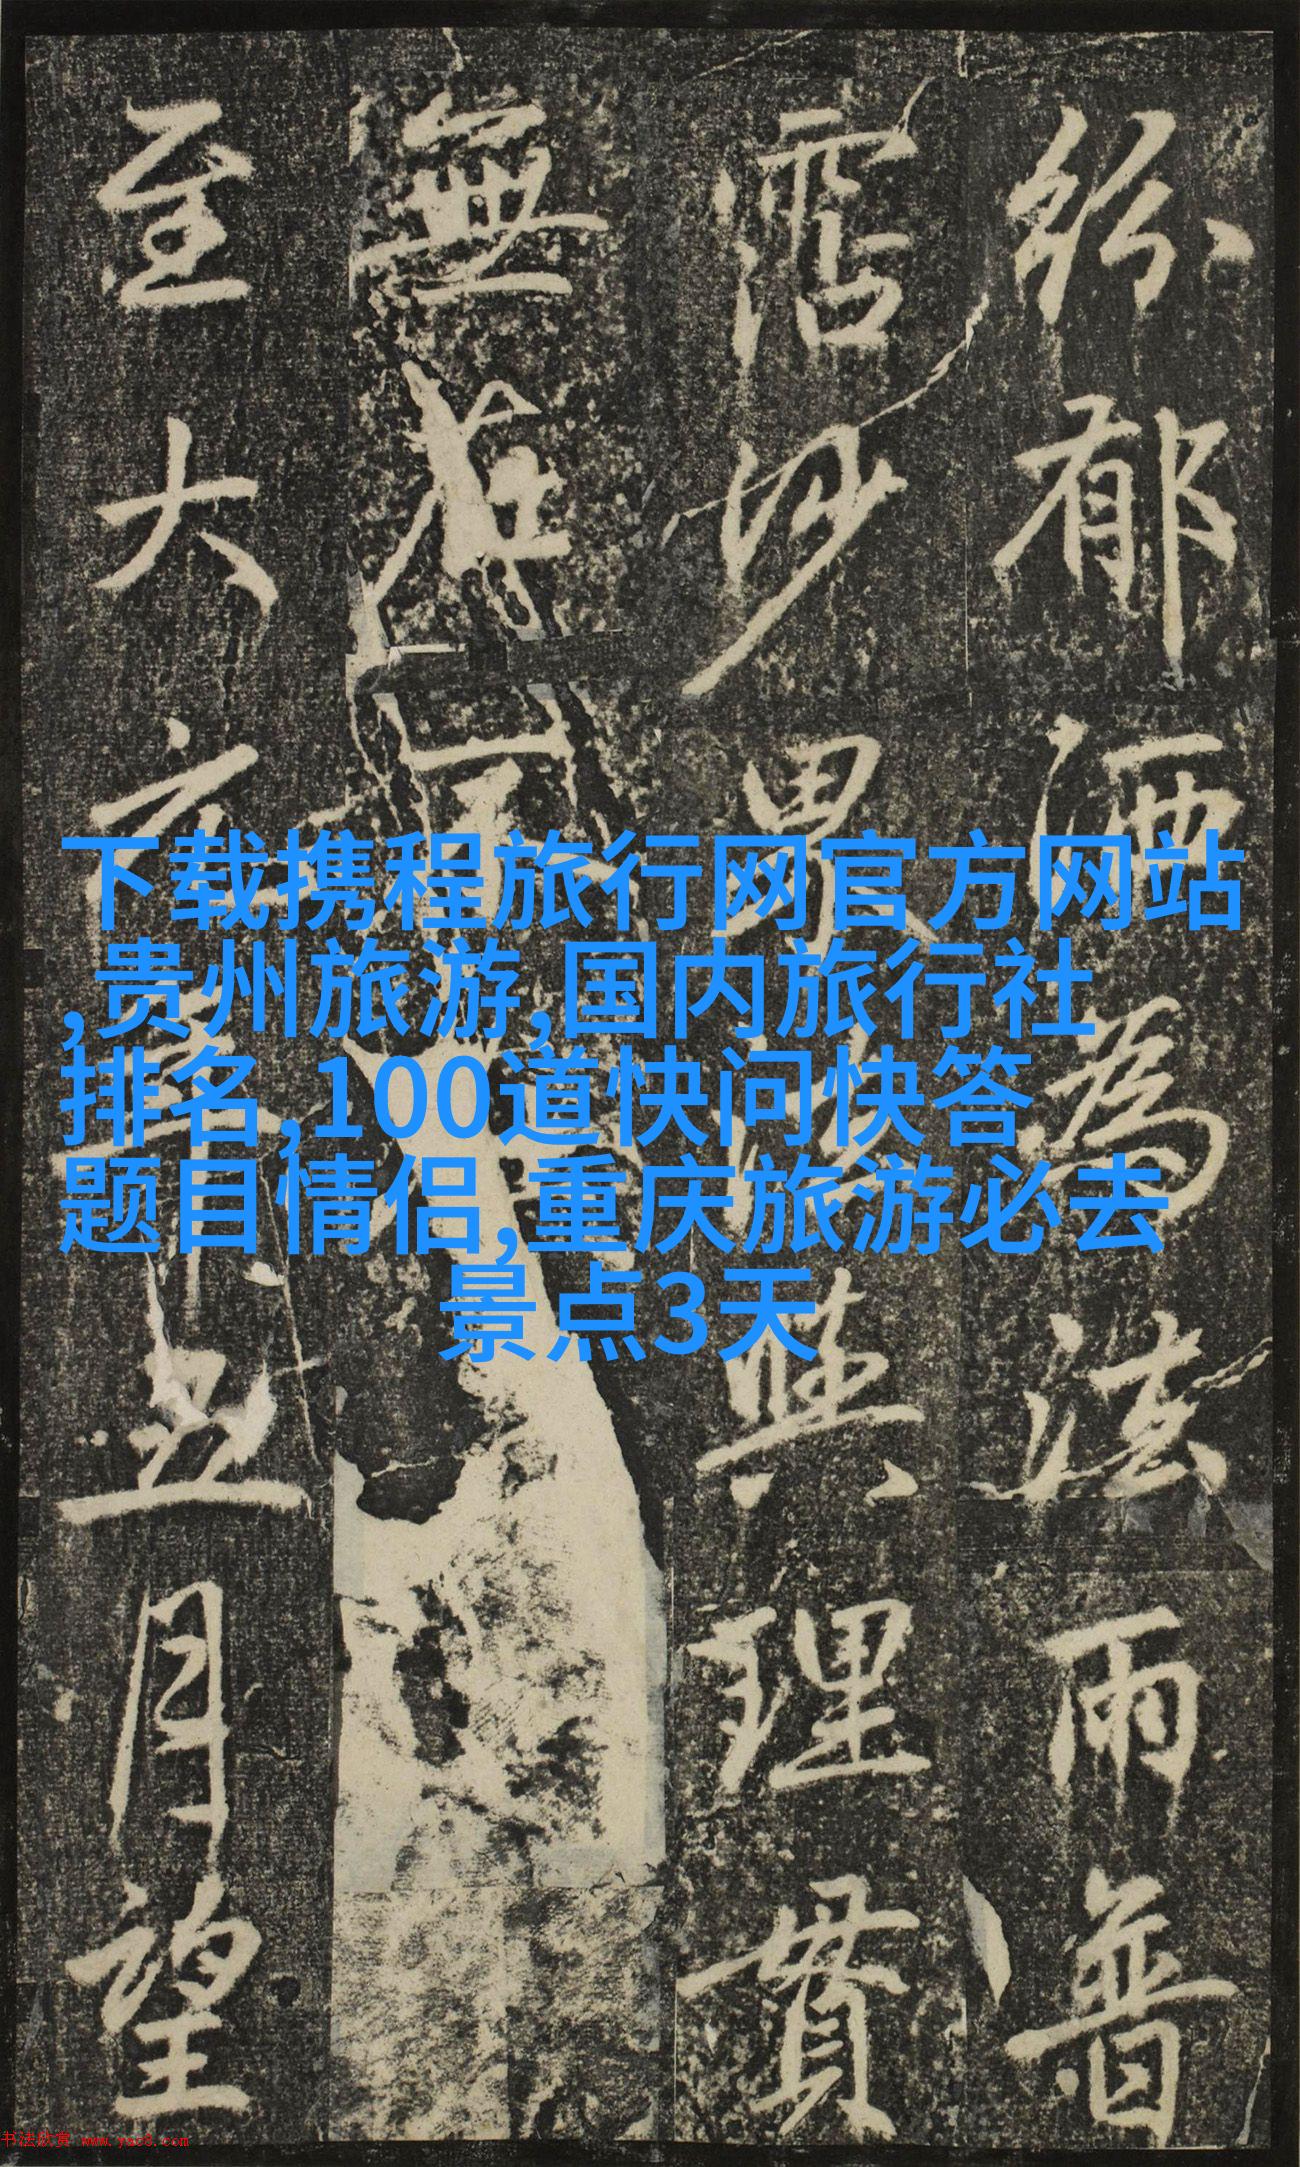 紛郁洒為法雨普
霑沙界以興理貫
無
至大
五月望
下载携程旅行网官方网站
,贵州旅游,国内旅行社
排名,100道快问快答
题目情侣,重庆旅游必去
景点3天
书法欣赏 www.yac8.com